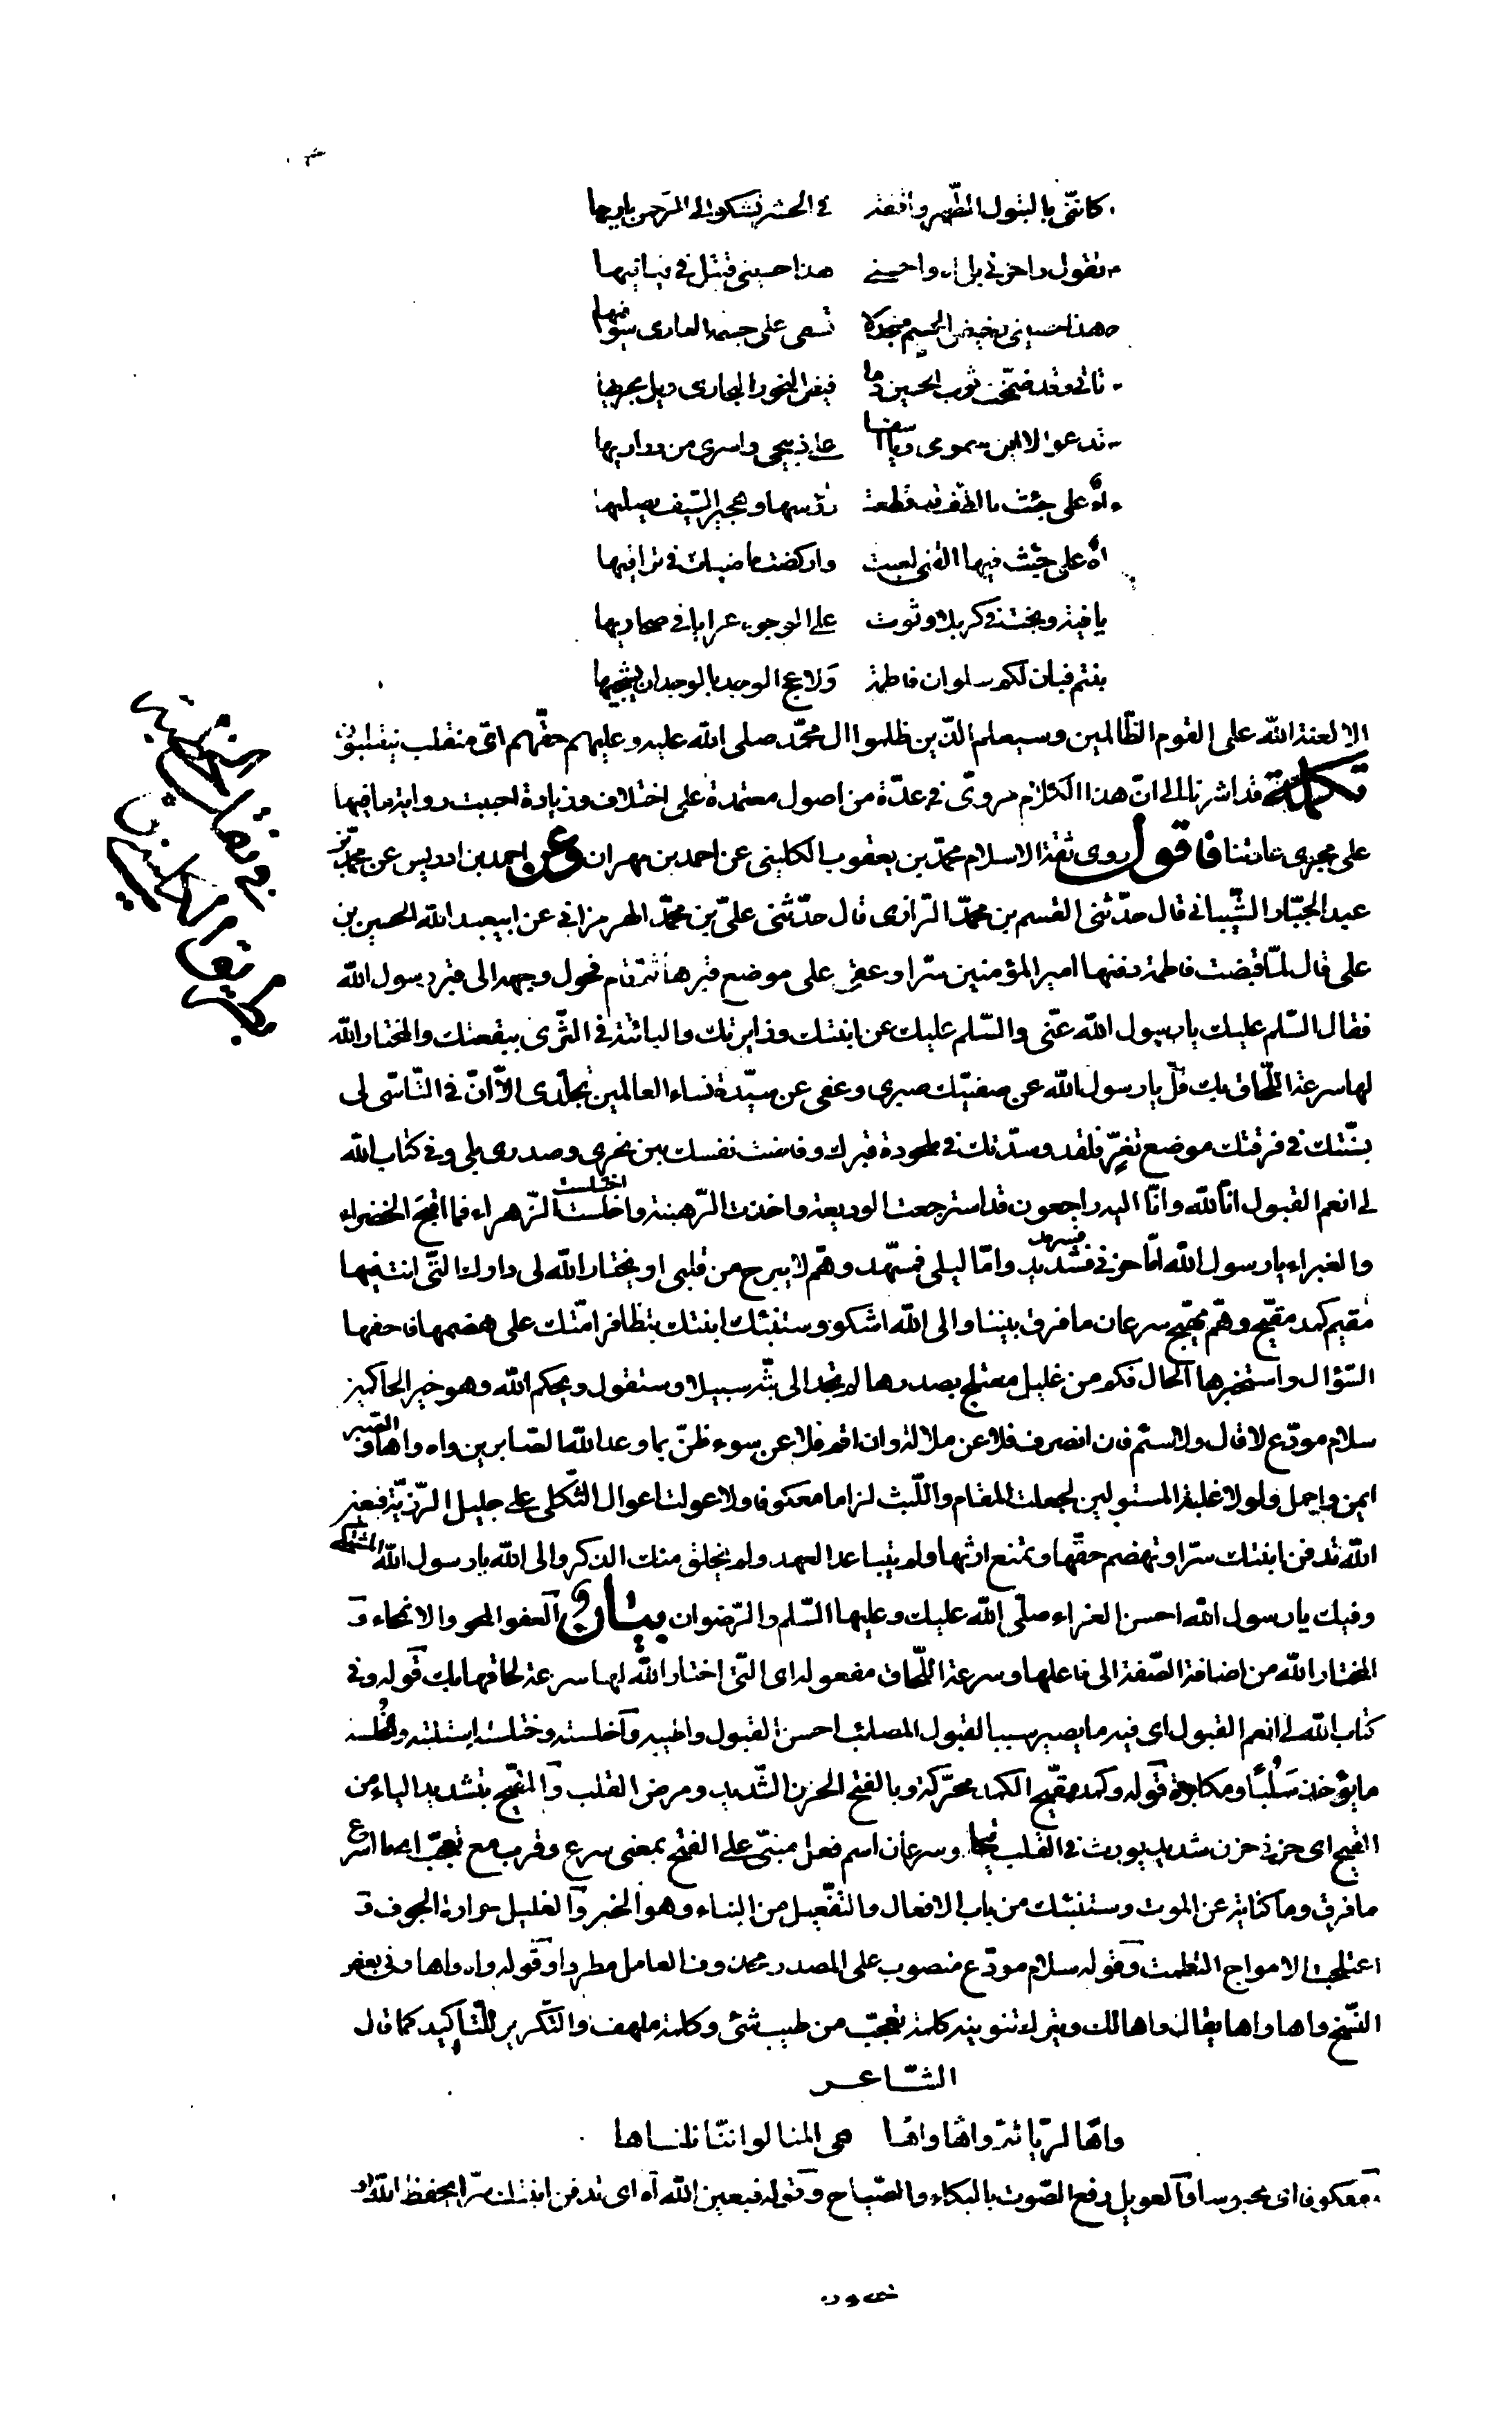 كانني بالبتول الطهر واقفة في الحشر تشكو الى الرحمن باريها
تقول واحزني وا حسيني هذا حسيني قتيل في فيافيها
وهذا حسيني رضيض الجسم منجدلا تسعى على جسمه العاري سوافيها
تاتي وقد ضمخت ثوب الحسين دما فيض النحور الجاري ويل مجريها
تدعو الا اين ويا اسفا على ذبيحي واسري من دراريها
اه على جثث بالطف قد قطعت رؤسها وهجير الصيف يصليها
اه على جثث فيها القنى لعبت واركضت عاضبات في تراقيها
يا فتية ذبحت في كربلا وثوت على الوجوه عرايا في صحاريها
بنتم فبان لكم سلوان فاطمة ولاعج الوجد بالوجدان يشجيها
الا لعنة الله على القوم الظالمين وسيعلم الذين ظلموا ال محمد صلى الله عليه وعليهم حقهم اى منقلب ينقلبون
تكملة قد اشرنا الى ان هذا الكلام مروى في عدة من اصول معتمدة على اختلاف وزيادة احببت رواية ما فيها
على مجرى عادتنا فاقول روى ثقة الاسلام محمد بن يعقوب الكليني عن احمد بن مهران وعن احمد بن ادريس عن محمد بن
عبد الجبار الشيباني قال حدثني القسم بن محمد الرازى قال حدثنى على بن محمد الهرمزاني عن ابيعبد الله الحسين بن
على قال لما قبضت فاطمة دفنها امير المؤمنين سرا وعفى على موضع قبرها ثم قام فحول وجهه الى قبر رسول الله
فقال السلم عليك يا رسول الله عنى والسلم عليك عن ابنتك وزايرتك والبائتة في الثرى ببقعتك والمختار الله
لها سرعة اللحاق بك قل يا رسول الله عن صفيتك صبري وعفى عن سيدة نساء العالمين تجلدى الا ان في التاسى لى
بسنتك في فرقتك موضع تعز فلقد وسدتك في ملحودة قبرك وفاضت نفسك بين نحرى وصدرى بلى وفي كتاب الله
لى انعم القبول انا لله وانا اليه راجعون قد استرجعت الوديعة واخذت الرهينة واخلست اختلست الزهراء فما اقبح الخضراء
والغبراء يا رسول الله اما حزني فسرمد فشديد واما ليلى فمسهد وهم لا يبرح من قلبى او يختار الله لى دارك التى انت فيها
مقيم كمد مقيح وهم مهيج سرعان ما فرق بيننا والى الله اشكو وستنبئك ابنتك بتظافر امتك على هضمها فاحفها
السؤال واستخبرها الحال فكم من غليل معتلج بصدرها لم تجد الى بثه سبيلا وستقول ويحكم الله وهو خير الحاكمين
سلام مودع لا قال ولا سئم فان انصرف فلا عن ملالة وان اقم فلا عن سوء ظن بما وعد الله الصابرين واه واها والصبر
ايمن واجمل ولولا غلبة المستولين لجعلت المقام واللبث لزاما معكوفا ولاعولت اعوال الثكلى على جليل الرزية فبعين
الله تدفن ابنتك سرا وتهضم حقها وتمنع ارثها ولم يتباعد العهد ولم يخلق منك الذكر والى الله يا رسول الله المشتكى
وفيك يا رسول الله احسن العزاء صلى الله عليك وعليها السلم والرضوان بيان العفو المحو والانمحاء و
المختار الله من اضافة الصفة الى فاعلها وسرعة اللحاق مفعوله اى التى اختار الله لها سرعة لحاقها بك قوله وفي
كتاب الله لى انعم القبول اى فيه ما يصير سببا لقبول المصائب احسن القبول واطيبه واخلسته وختلسته استلبته
ما يؤخذ سلبا ومكابرة قوله وكمد مقيح الكمد محركة وبالفتح الحزن الشديد ومرض القلب والمقيح بتشديد الياء من
القيح اى حزني حزن شديد يورث في القلب قيحا وسرعان اسم فعل مبنى على الفتح بمعنى سرع وقرب مع تعجب اى ما اسرع
ما فرق وما كناية عن الموت وستنبئك من باب الافعال والتفعيل من النباء وهو الخبر والغليل حرارة الجوف و
اعتلجت الامواج التطمت وقوله سلام مودع منصوب على المصدر محذوف العامل مطردا وقوله واه واها وفي بعض
النسخ واها واها يقال واها لك ويترك تنوينه كلمة تعجب من طيب شئ وكلمة ملهف والتكرير للتاكيد كما قال
الشاعر
واها لريا ثم واها واها هى المنا لو اننا نلناها
معكوفا اى محبوسا والعويل رفع الصوت بالبكاء والصياح وقوله فبعين الله اه اى تدفن ابنتك سرا بحفظ الله و